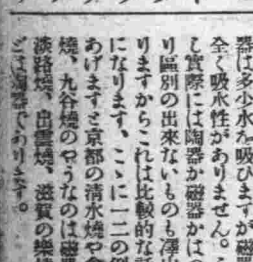 器は多少水を吸ひますが磁
全く吸水性がありません。
し實際には陶器か磁器かは
り區別の出來ないものも澤
りますからこれは比較的な
になります、こゝに一二の例
あげますと京都の淸水燒や
燒、九谷燒のやうなのは磁器
淡路燒、出雲燒、滋賀の樂燒
どは陶器であります。